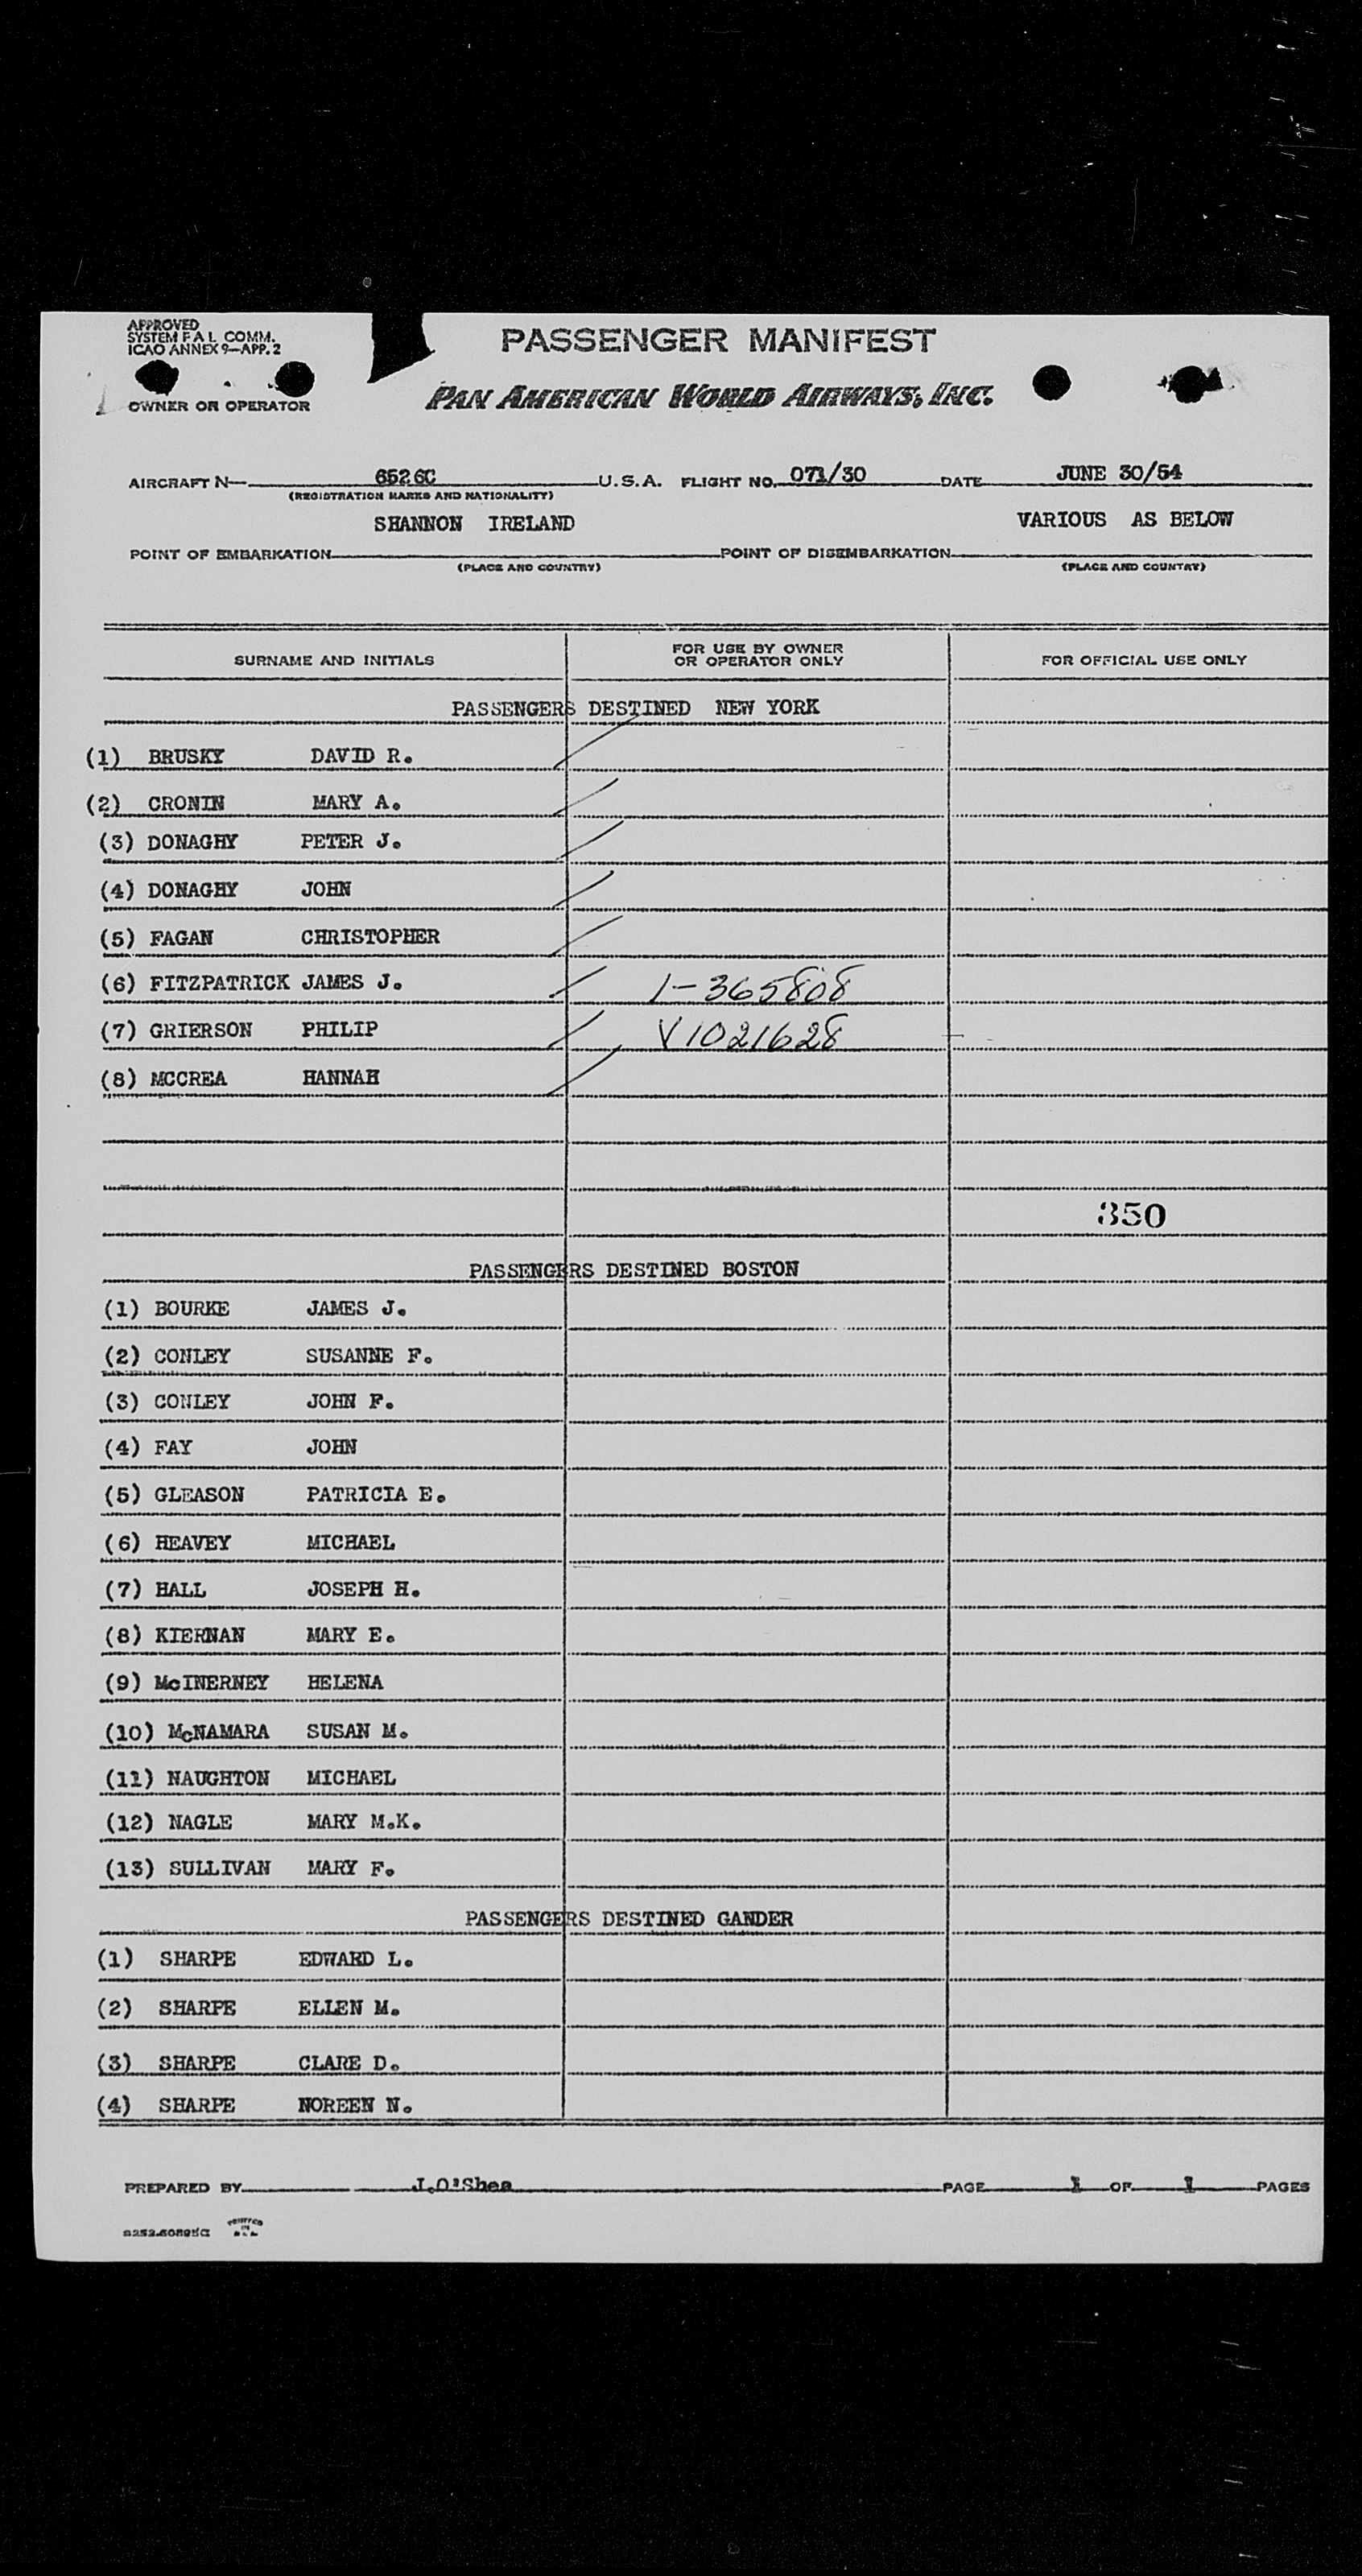 APPROVED
SYSTEM F A L COMM.
ICAO ANNEX 9—APP. 2
PASSENGER MANIFEST
OWNER OR OPERATOR
PAN AMERICAN WORLD AIRWAYS, INC.
AIRCRAFT N— 6526C U.S.A. FLIGHT NO. 071/30 DATE JUNE 30/54
(REGISTRATION MARKS AND NATIONALITY)
SHANNON IRELAND VARIOUS AS BELOW
POINT OF EMBARKATION POINT OF DISEMBARKATION
(PLACE AND COUNTRY) (PLACE AND COUNTRY)
SURNAME AND INITIALS FOR USE BY OWNER OR OPERATOR ONLY FOR OFFICIAL USE ONLY
PASSENGERS DESTINED NEW YORK
(1) BRUSKY DAVID R.
(2) CRONIN MARY A.
(3) DONAGHY PETER J.
(4) DONAGHY JOHN
(5) FAGAN CHRISTOPHER
(6) FITZPATRICK JAMES J. 1-365808
(7) GRIERSON PHILIP V1021628
(8) MCCREA HANNAH
350
PASSENGERS DESTINED BOSTON
(1) BOURKE JAMES J.
(2) CONLEY SUSANNE F.
(3) CONLEY JOHN F.
(4) FAY JOHN
(5) GLEASON PATRICIA E.
(6) HEAVEY MICHAEL
(7) HALL JOSEPH H.
(8) KIERNAN MARY E.
(9) McINERNEY HELENA
(10) McNAMARA SUSAN M.
(11) NAUGHTON MICHAEL
(12) NAGLE MARY M.K.
(13) SULLIVAN MARY F.
PASSENGERS DESTINED GANDER
(1) SHARPE EDWARD L.
(2) SHARPE ELLEN M.
(3) SHARPE CLARE D.
(4) SHARPE NOREEN N.
PREPARED BY J.O'Shea PAGE 1 OF 1 PAGES